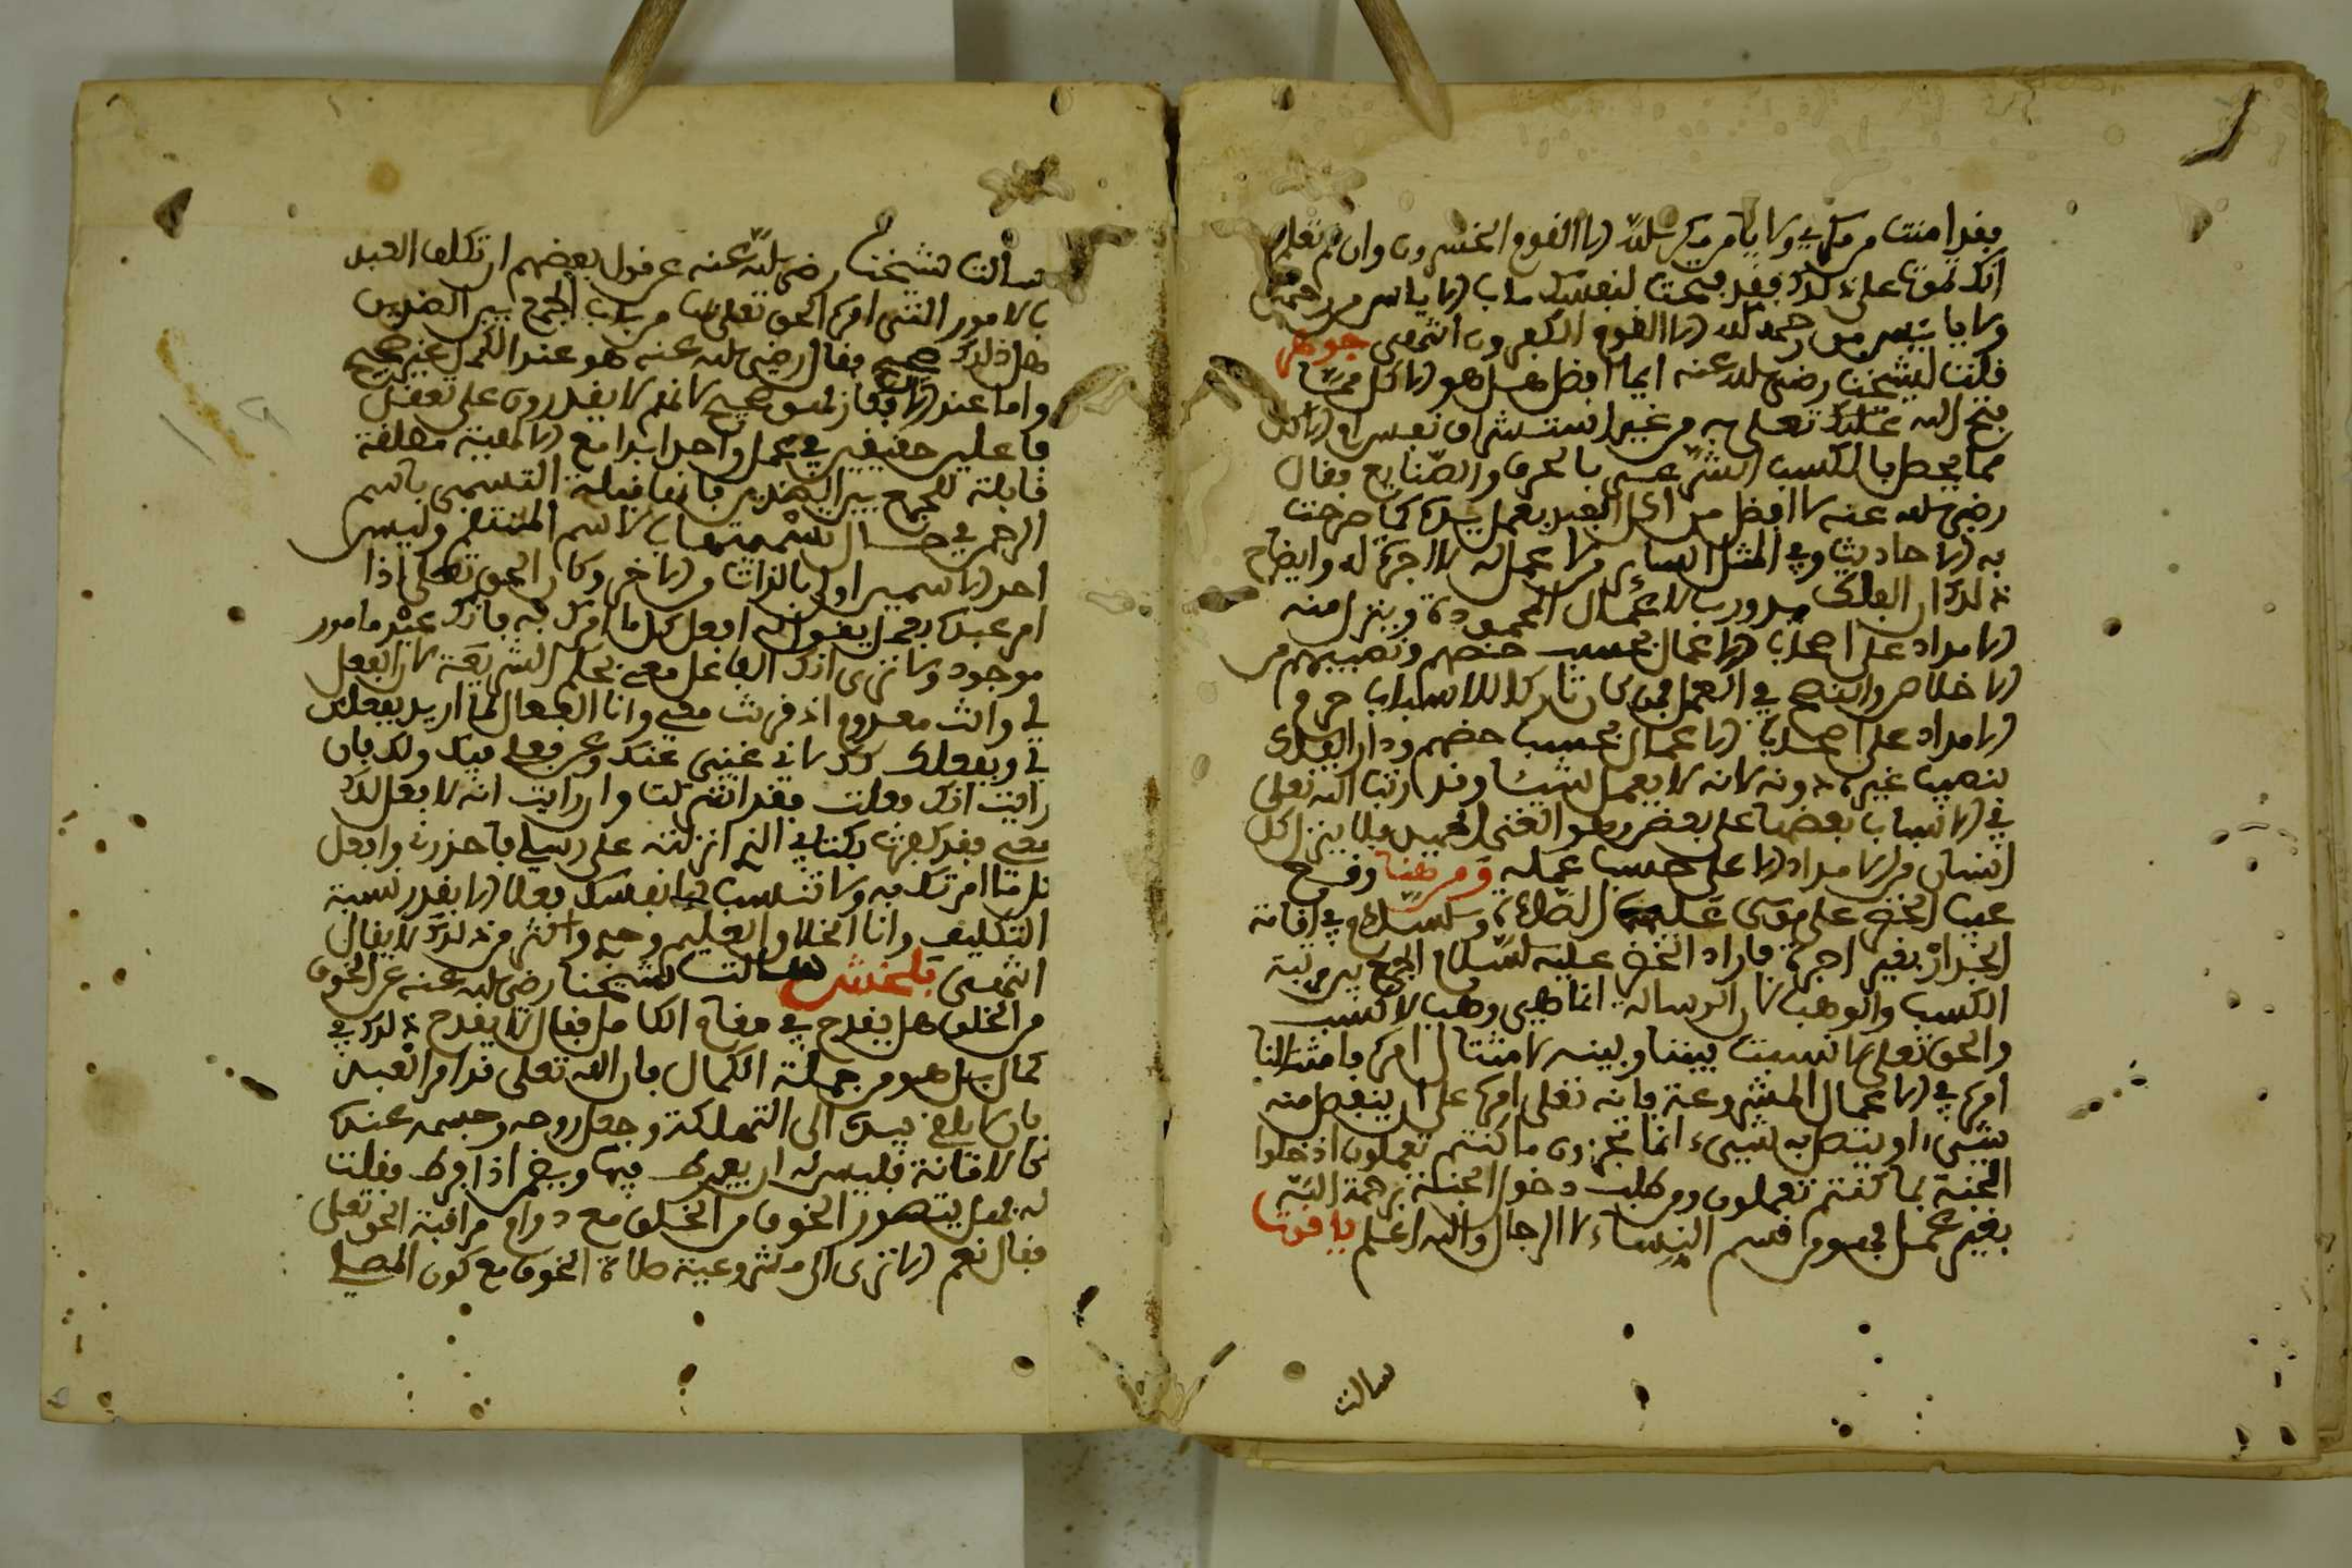 فقد امنت من مكر ولا يامن مكر الله الا القوم الخسرون وان لم تعلم
انك تموت على ذلك فقد فتحت لنفسك باب الاياس من رحمة
ولا يايئس من رحمة الله الا القوم الكفرون انتهى جوهر
قلت لشيخنا رضي الله عنه ايما افضل هل هو الاكل مما
فتح الله عليك تعلى به من غير استشراف نفس ام الاكل
مما يحصل بالكسب الشرعي بالحرف والصنايع فقال
رضي الله عنه لا افضل من اكل العبد بعمل يده كما صرحت
به الاحاديث وفي المثل الساير من لا عمل له لا اجرة له وايضاح
ذلك ان الفلك يدور بالاعمال المحمودة وينزل منه
الامداد على اصحاب الاعمال بحسب حضهم ونصيبهم من
الاخلاص والنصح في العمل فمن كان تاركا للاسباب حرم
الامداد على اصحاب الاعمال بحسب حضهم ودار الفلك
بنصيب غيره دونه لانه لا يعمل شيئا وقد رتب الله تعلى
في الاسباب بعضها على بعض وهو الغني الحميد فلا ينزل كل
انسان من الامداد الا على حسب عمله ومن هنا وقع
عيب الخضر على موسى عليهما الصلاة والسلام في اقامة
الجدار بغير اجرة فاراد الخضر عليه السلام الجمع بين مرتبة
الكسب والوهب لان الرسالة انما هي وهب لا كسب
والحق تعلى لا نسبت بيننا وبينه الا امتثال امره فامتثالنا
امره في الاعمال المشروعة فانه تعلى امره على ان ينقص منه
شيء او يتصل به شيء انما تجزون ما كنتم تعملون ادخلوا
الجنة بما كنتم تعملون ومن طلب دخول الجنة برحمة الله
بغير عمل فهو من قسم النساء لا الرجال والله اعلم ياقوت
سالت
سالت شيخنا رضي الله عنه عن قول بعضهم ان تكلف العبد
بالامور التي امره الحق تعلى بها من باب الجمع بين الضدين
هل ذلك صحيح فقال رضي الله عنه هو عند الكمل غير صحيح
واما عند فهو صحيح لانهم لا يقدرون على تعقل
فاعلين حقيقين في عمل واحد ابدا مع الالهية مطلقة
قابلة للجمع بين الضدين فانها قبلت التسمى باسم
الرحمن في حال تسميتها بالاسم المنتقم وليس
احد الاسمين اولى بالذات من الاخر وكان الحق تعلى اذا
امر عبده بعمل يقول له افعل كل ما امرك به فانك عبد مامور
موجود ولا ترى انك الفاعل معي بحكم الشريعة لان الفعل
لي وانت معدوم اذ قرنت معي وانا الفعال لما اريد بفعلك
في وبفعلك لا غنى عنك وعن فعلي فيك ولك فان
رايت انك فعلت فقد اشركت وان رايت انه لا فعل لك
معي فقد كفرت بكتابي الذي انزلته على رسلي فاحذرني وافعل
كل ما امرتك به ولا تنسب الى نفسك فعلا الا بقدر نسبة
التكليف وانا الخلاق العليم وحي واكثر من ذلك لا يقال
انتهى بلخش سالت شيخنا رضي الله عنه عن الخوف
من الخلق هل يقدح في مقام الكامل فقال لا يقدح ذلك في
كمال بل هو من جملة الكمال فان الله تعلى قد امر العبد
بان لا يلقي بيده الى التهلكة وجعل روحه وجسمه عنده
كالامانة فليس له ان يفرط فيها ويضمن اذا فرط فقلت
له فهل يتصور الخوف من الخلق مع دوام مراقبة الحق تعلى
فقال نعم الا ترى الى مشروعية صلاة الخوف مع كون المصلي